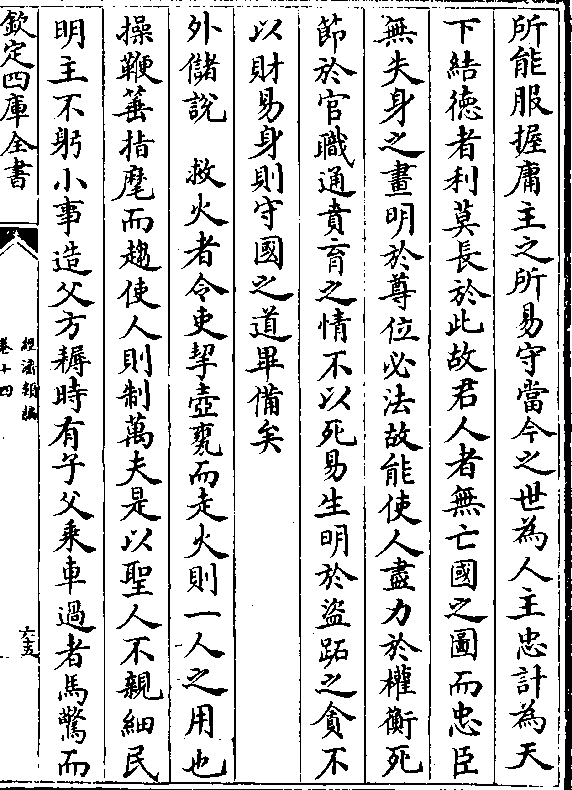 所能服握庸主之所易守當今之世為人主忠計為天
下結徳者利莫長於此故君人者無亡國之圖而忠臣
無失身之畫明於尊位必法故能使人盡力於權衡死
節於官職通賁育之情不以死易生明於盜跖之貪不
以財易身則守國之道畢備矣
外儲說　救火者令吏挈壺甕而走火則一人之用也
操鞭箠指麾而趨使人則制萬夫是以聖人不親細民
明主不躬小事造父方耨時有子父乘車過者馬驚而
欽定四庫全書
經濟類編
卷十四
六十五